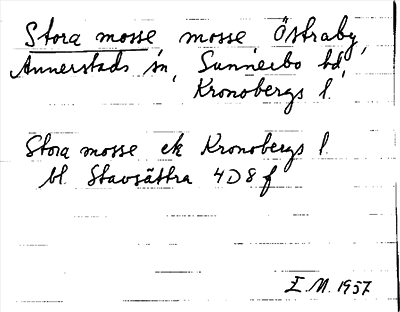 Stora mosse mosse Östraby,
Annerstads sn, Sunnerbo hd,
Kronobergs l.
Stora mosse ek Kronobergs l.
bl. Stavsättra 4D8f
E.M. 1957